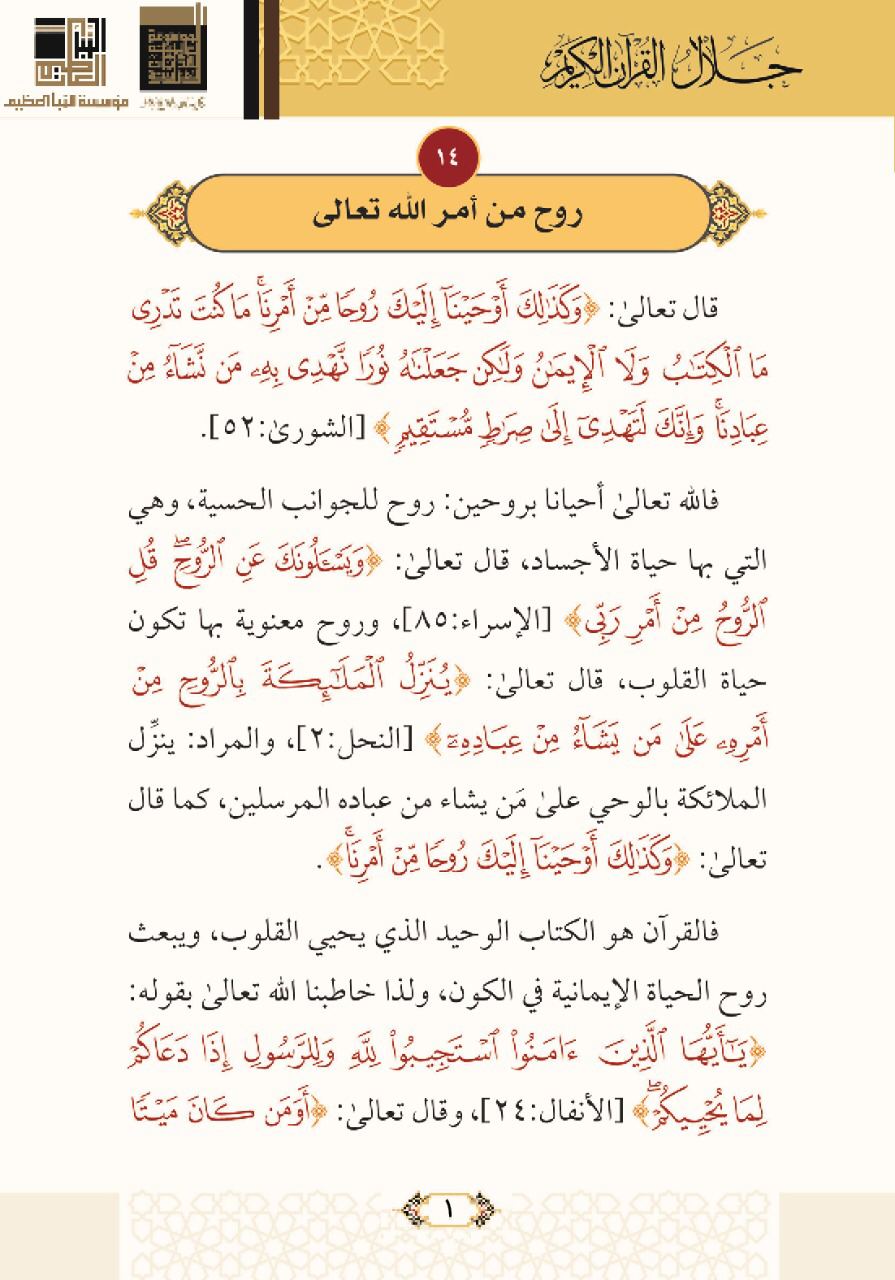 جلال القرآن الكريم
النبأ العظيم
مؤسسة النبأ العظيم
١٤
روح من أمر الله تعالى
قال تعالىٰ: ﴿وَكَذَٰلِكَ أَوْحَيْنَآ إِلَيْكَ رُوحًا مِّنْ أَمْرِنَاۚ مَا كُنتَ تَدْرِى
مَا ٱلْكِتَٰبُ وَلَا ٱلْإِيمَٰنُ وَلَٰكِن جَعَلْنَٰهُ نُورًا نَّهْدِى بِهِۦ مَن نَّشَآءُ مِنْ
عِبَادِنَاۚ وَإِنَّكَ لَتَهْدِىٓ إِلَىٰ صِرَٰطٍ مُّسْتَقِيمٍ﴾ [الشورىٰ:٥٢].
فالله تعالىٰ أحيانا بروحين: روح للجوانب الحسية، وهي
التي بها حياة الأجساد، قال تعالىٰ: ﴿وَيَسْـَٔلُونَكَ عَنِ ٱلرُّوحِۖ قُلِ
ٱلرُّوحُ مِنْ أَمْرِ رَبِّى﴾ [الإسراء:٨٥]، وروح معنوية بها تكون
حياة القلوب، قال تعالىٰ: ﴿يُنَزِّلُ ٱلْمَلَٰٓئِكَةَ بِٱلرُّوحِ مِنْ
أَمْرِهِۦ عَلَىٰ مَن يَشَآءُ مِنْ عِبَادِهِۦٓ﴾ [النحل:٢]، والمراد: ينزِّل
الملائكة بالوحي علىٰ مَن يشاء من عباده المرسلين، كما قال
تعالىٰ: ﴿وَكَذَٰلِكَ أَوْحَيْنَآ إِلَيْكَ رُوحًا مِّنْ أَمْرِنَاۚ﴾.
فالقرآن هو الكتاب الوحيد الذي يحيي القلوب، ويبعث
روح الحياة الإيمانية في الكون، ولذا خاطبنا الله تعالىٰ بقوله:
﴿يَٰٓأَيُّهَا ٱلَّذِينَ ءَامَنُوا۟ ٱسْتَجِيبُوا۟ لِلَّهِ وَلِلرَّسُولِ إِذَا دَعَاكُمْ
لِمَا يُحْيِيكُمْۖ﴾ [الأنفال:٢٤]، وقال تعالىٰ: ﴿أَوَمَن كَانَ مَيْتًا
١